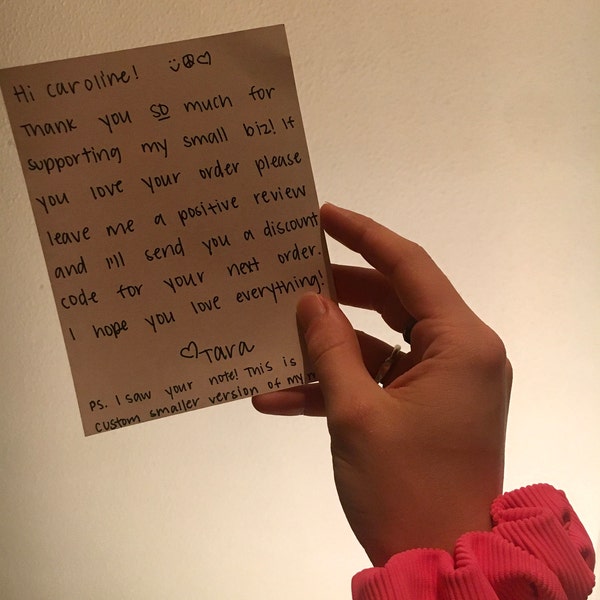 Hi Caroline!
Thank you SO much for
supporting my small biz! If
you love your order please
leave me a positive review
and I'll send you a discount
code for your next order.
I hope you love everything!
♡Tara
PS. I saw your note! This is
custom smaller version of my